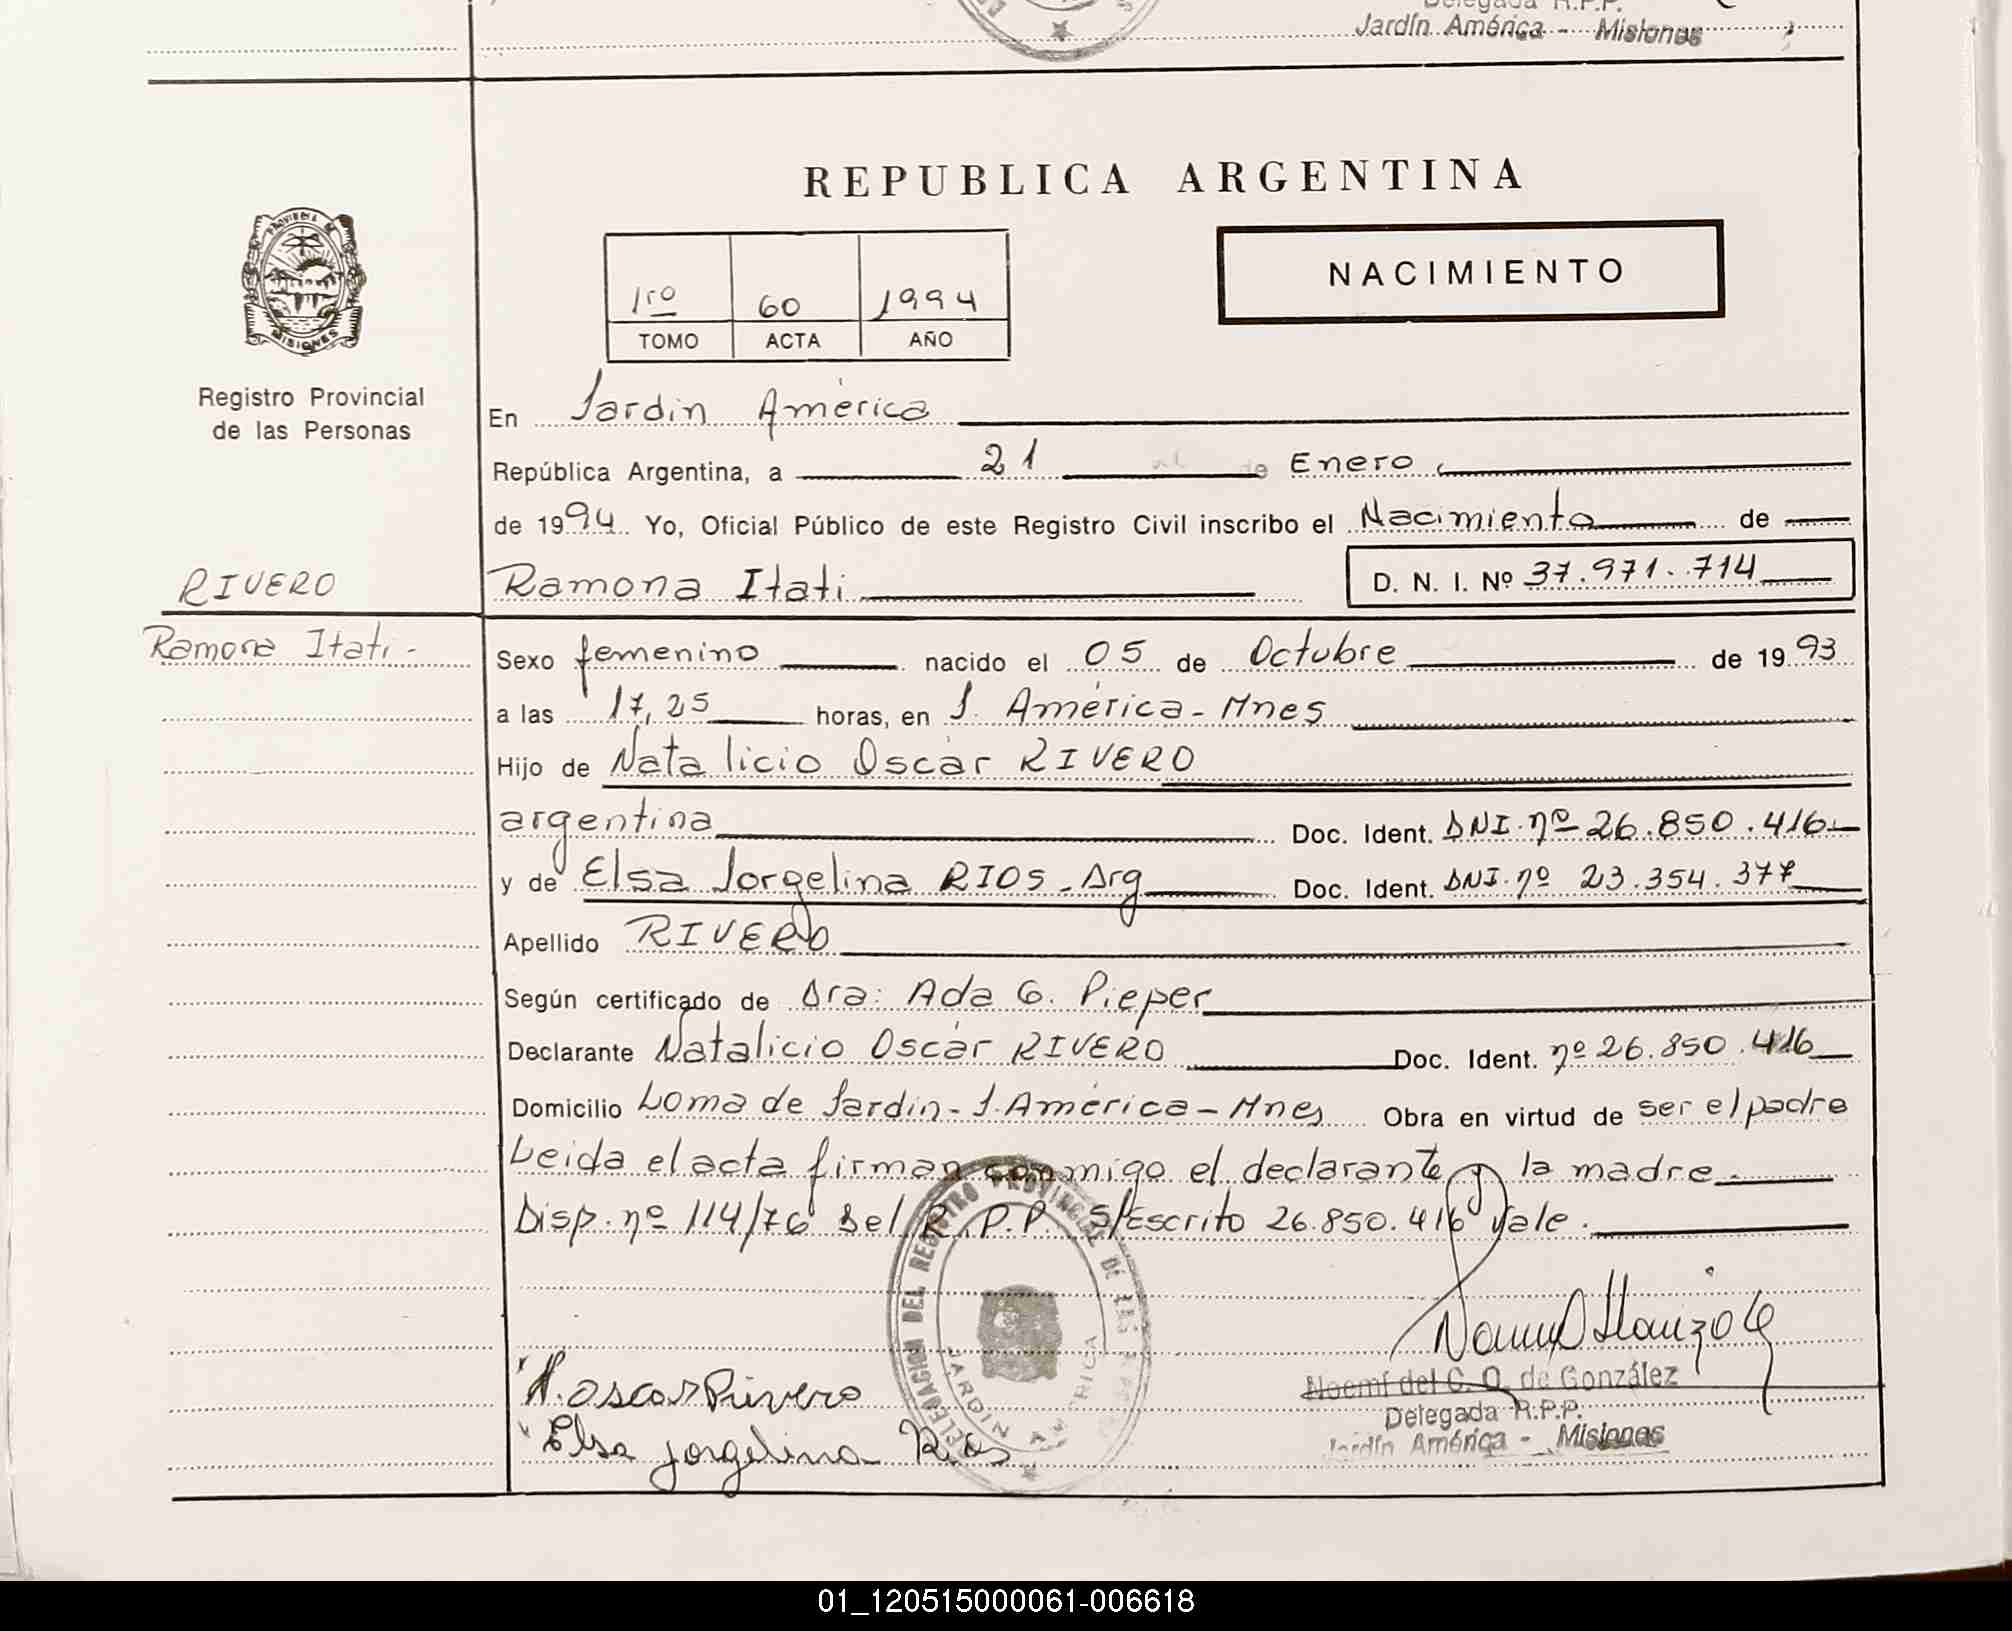 Delegada R.P.P.
Jardín América - Misiones
REPUBLICA ARGENTINA
PROVINCIA DE
MISIONES
1ro 60 1994
TOMO ACTA AÑO
NACIMIENTO
Registro Provincial
de las Personas
En Jardin América
República Argentina, a 21 de Enero
de 1994 Yo, Oficial Público de este Registro Civil inscribo el Nacimiento de
RIVERO
Ramona Itati D. N. I. Nº 37.971.714
Ramona Itati -
Sexo femenino nacido el 05 de Octubre de 1993
a las 17,25 horas, en J. América - Mnes
Hijo de Natalicio Oscar RIVERO
argentina Doc. Ident. DNI. nº 26.850.416
y de Elsa Jorgelina RIOS - Arg Doc. Ident. DNI. nº 23.354.377
Apellido RIVERO
Según certificado de Dra: Ada G. Pieper
Declarante Natalicio Oscar RIVERO Doc. Ident. nº 26.850.416
Domicilio Loma de Jardin - J. América - Mnes Obra en virtud de ser el padre
Leida el acta firman conmigo el declarante y la madre
Disp. nº 114/76 Del R.P.P. S/Escrito 26.850.416 Vale.
DELEGACION DEL REGISTRO PROVINCIAL DE LAS
JARDIN AMERICA
N. Oscar Rivero
Elsa Jorgelina Rios
Noemí del C. O. de González
Delegada R.P.P.
Jardín América - Misiones
01_120515000061-006618